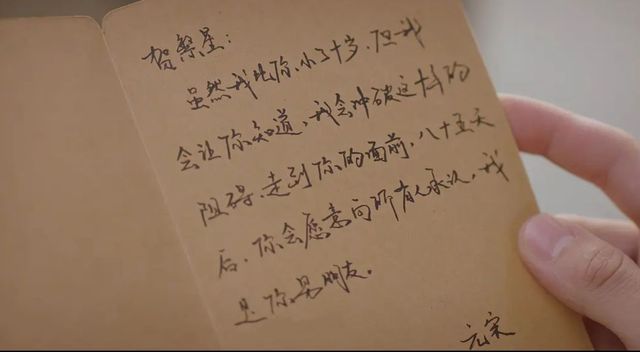 贺繁星：
虽然我比你小了十岁，但我
会让你知道，我会冲破这十年的
阻碍，走到你的面前，八十五天
后，你会愿意向所有人承认，我
是你男朋友。
元宋